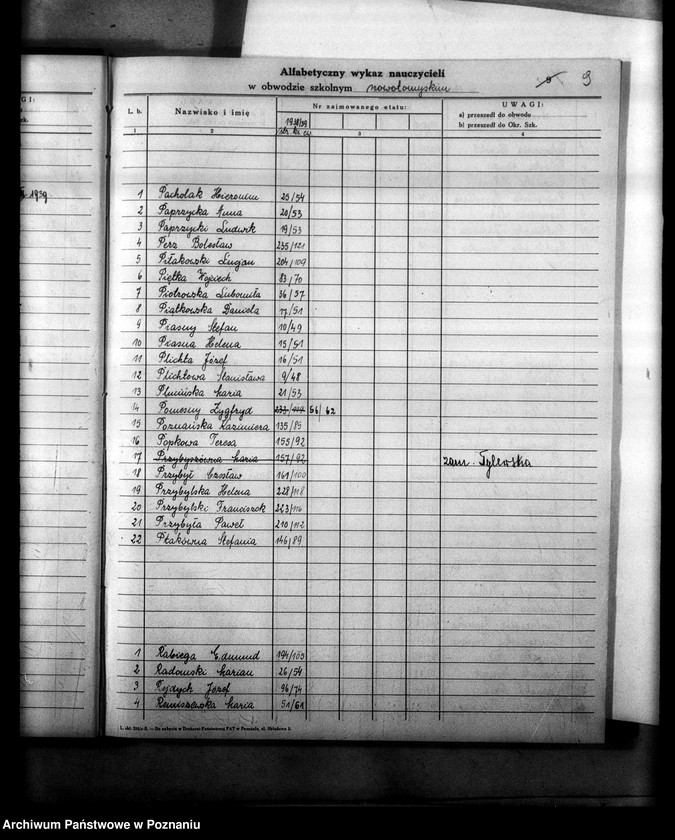 Alfabetyczny wykaz nauczycieli
w obwodzie szkolnym nowotomyskim
9 9
UWAGI:
a) przeszedł do obwodu
b) przeszedł do Okr. Szk.
L. b. Nazwisko i imię Nr zajmowanego etatu:
1938/39
1 2 3 4
1939
1 Pacholak Hieronim 25/54
2 Paprzycka Anna 20/53
3 Paprzycki Ludwik 19/53
4 Perz Bolesław 235/121
5 Piłakowski Lucjan 204/109
6 Piętka Wojciech 83/70
7 Piotrowska Lubomiła 36/57
8 Piątkowska Daniela 17/51
9 Piasny Stefan 10/49
10 Piasna Helena 15/51
11 Plichta Józef 16/51
12 Plichtowa Stanisława 9/48
13 Plucińska Maria 21/53
14 Pomesny Zygfryd 56/62
15 Poznańska Kazimiera 135/85
16 Popkowa Teresa 155/92
17 Przybyszówna Maria 157/92 zam. Tylewska
18 Przybył Czesław 161/100
19 Przybylska Helena 228/118
20 Przybylski Franciszek 223/116
21 Przybyła Paweł 210/112
22 Ptakówna Stefania 146/89
1 Rabiega Edmund 194/105
2 Radomski Marian 26/54
3 Rejdych Józef 96/74
4 Remiszewska Maria 51/61
Do nabycia w Drukarni Państwowej PAT w Poznaniu, ul. Składowa
Archiwum Państwowe w Poznaniu